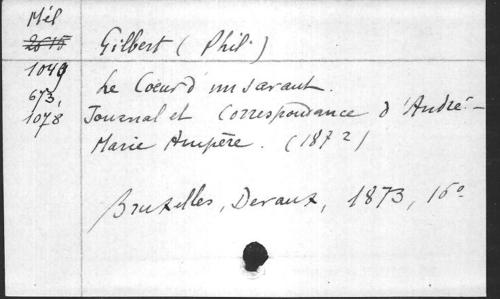 Mél
2615
Gilbert (Phil.)
1049
Le Cœur d'un savant.
673,
Journal et Correspondance d'André-
1078
Marie Ampère. (1872)
Bruxelles, Devaux, 1873, 16º